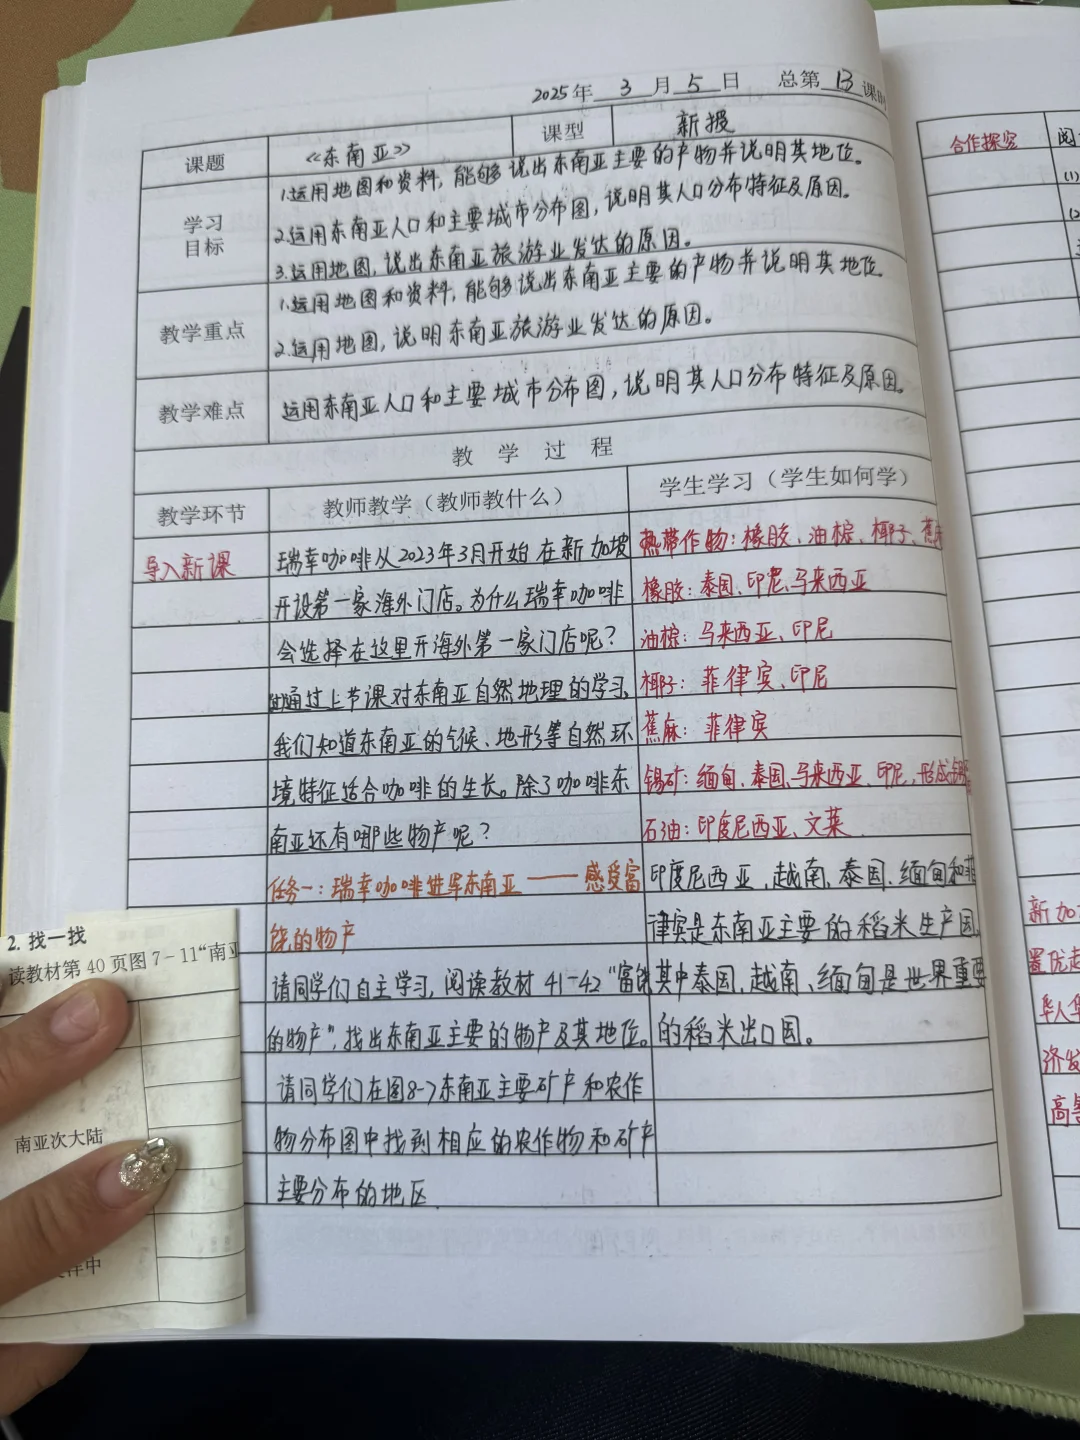 2025年 3 月 5 日 总第 13 课时
课题 《东南亚》 课型 新授
学习目标
1.运用地图和资料,能够说出东南亚主要的产物并说明其地位。
2.运用东南亚人口和主要城市分布图,说明其人口分布特征及原因。
3.运用地图,说出东南亚旅游业发达的原因。
教学重点
1.运用地图和资料,能够说出东南亚主要的产物并说明其地位
2.运用地图,说明东南亚旅游业发达的原因。
教学难点
运用东南亚人口和主要城市分布图,说明其人口分布特征及原因。
教 学 过 程
教学环节 教师教学(教师教什么) 学生学习(学生如何学)
导入新课
瑞幸咖啡从2023年3月开始在新加坡
开设第一家海外门店。为什么瑞幸咖啡
会选择在这里开海外第一家门店呢?
通过上节课对东南亚自然地理的学习,
我们知道东南亚的气候、地形等自然环
境特征适合咖啡的生长。除了咖啡东
南亚还有哪些物产呢?
任务一:瑞幸咖啡进军东南亚——感受富
饶的物产
请同学们自主学习,阅读教材41-42“富饶
的物产”,找出东南亚主要的物产及其地位。
请同学们在图8-7东南亚主要矿产和农作
物分布图中找到相应的农作物和矿产
主要分布的地区.
热带作物:橡胶、油棕、椰子、蕉麻
橡胶:泰国、印尼、马来西亚
油棕:马来西亚、印尼
椰子:菲律宾、印尼
蕉麻:菲律宾
锡矿:缅甸、泰国、马来西亚、印尼,形成锡
石油:印度尼西亚、文莱
印度尼西亚、越南、泰国、缅甸和菲
律宾是东南亚主要的稻米生产国,
其中泰国、越南、缅甸是世界重要
的稻米出口国。
2. 找一找
读教材第 40 页图 7-11“南亚
南亚次大陆
洋中
合作探究
阅
(1)
(2
新加
置优越
华人华
济发
高等